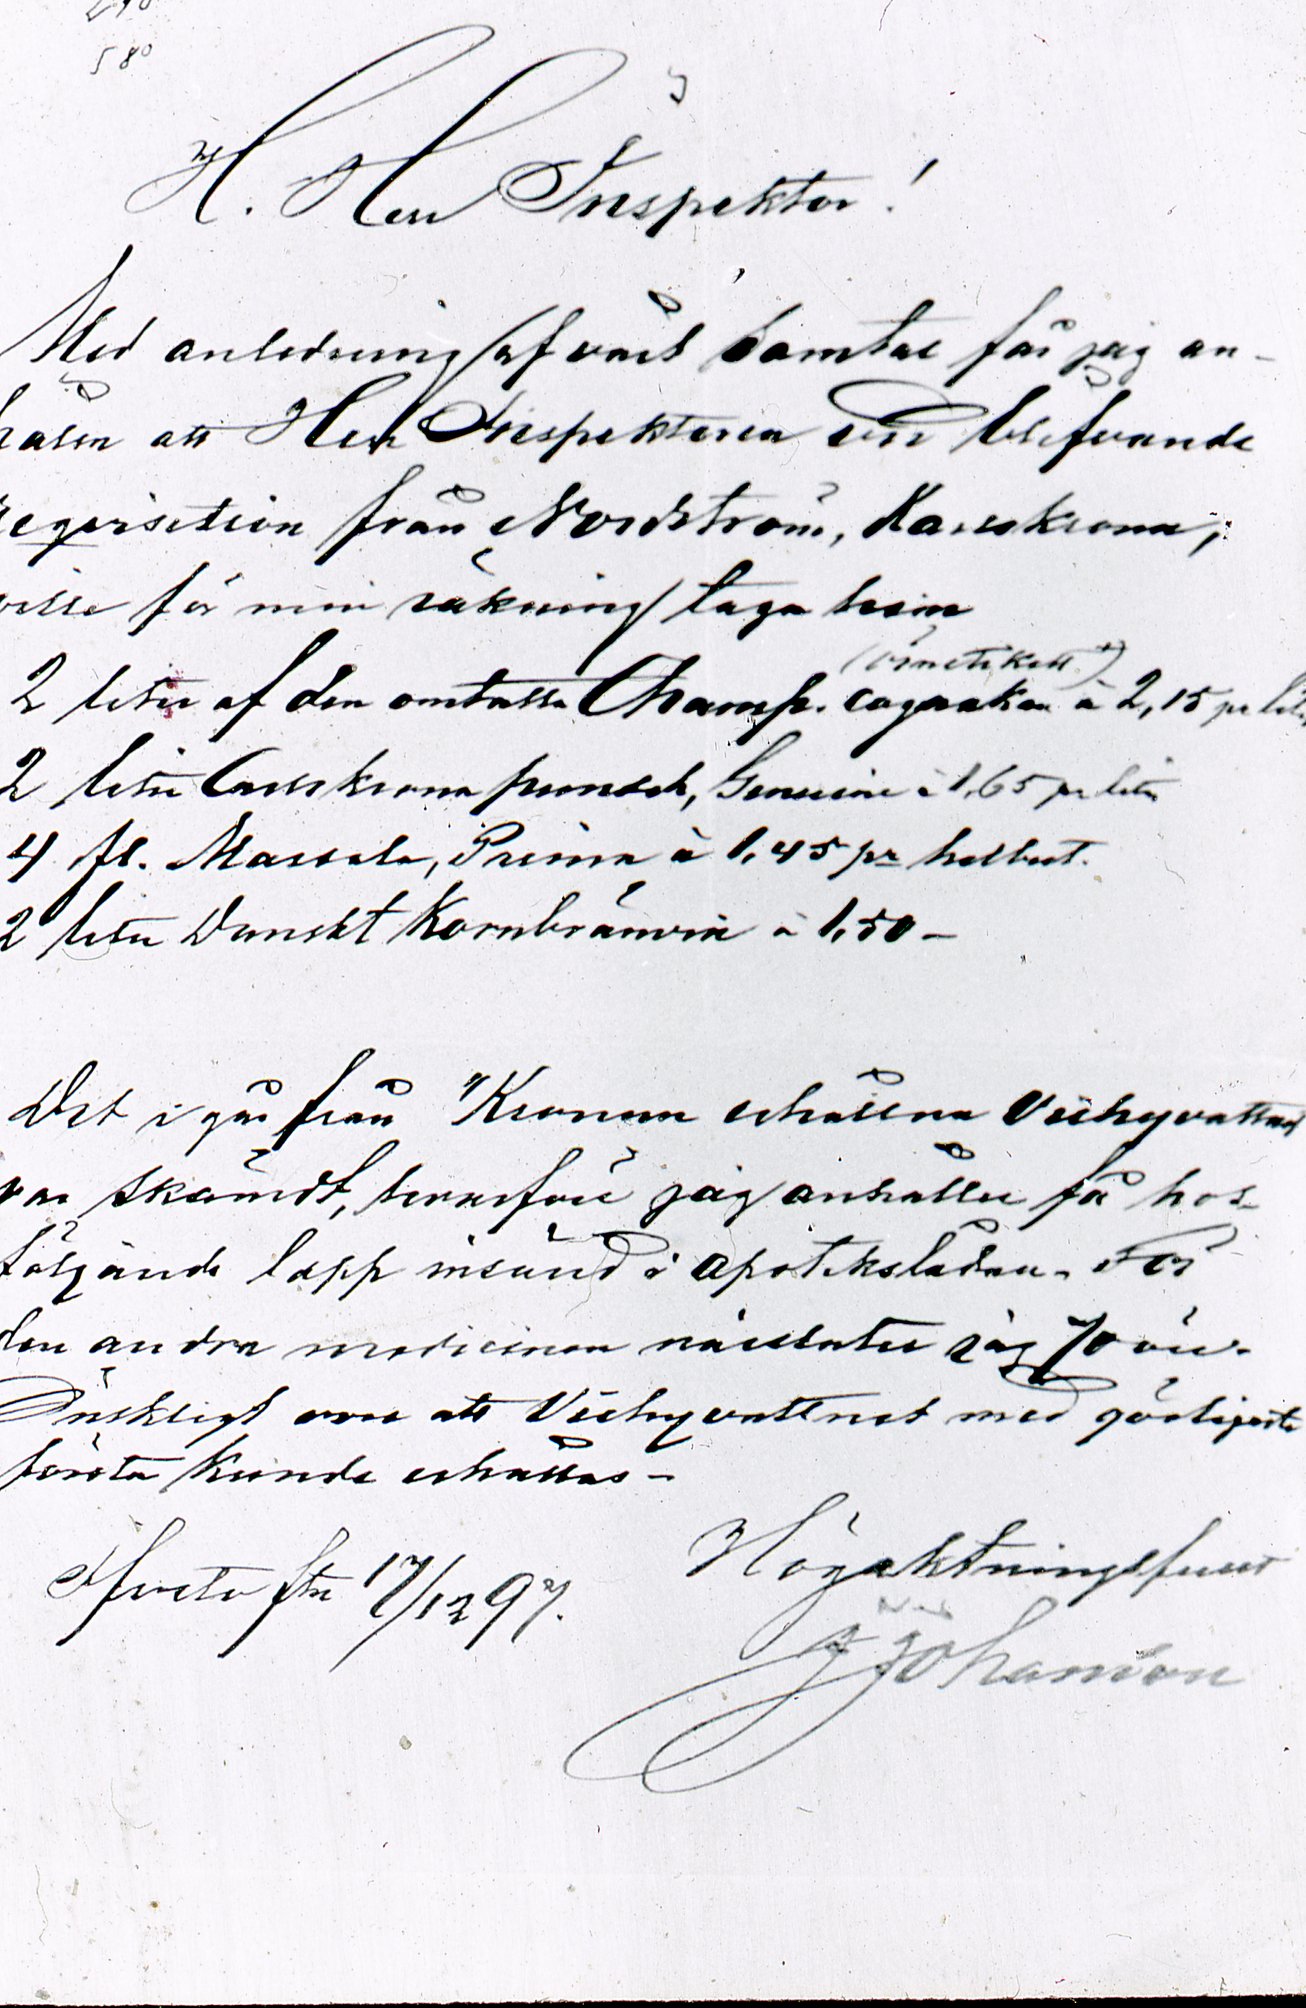 580
H. Herr Inspektor!
Med anledning af vårt samtal får jag an-
hålla att Herr Inspektoren vid blifvande
reqvisition från Nordström, Karlskrona,
ville för min räkning taga hem
(örnetikett)
2 liter af den omtalta Champ. cognaken à 2,15 pr liter
2 liter Carlskrona punsch, Genuine à 1,65 pr liter
4 fl. Marsala, Prima à 1,45 pr helbut.
2 liter Danskt Kornbränvin à 1,50 -
Det i går från "Kronan erhållna Vichyvattnet
var skämdt, hvarföre jag anhåller få hos-
följande lapp insänd i apotekslådan. För
den andra medicinen närslutes jag 70 öre.
Önskligt vore att Vichyvattnet med görligaste
första kunde erhållas -
17/12 97.
Högaktningsfullt
Johanson